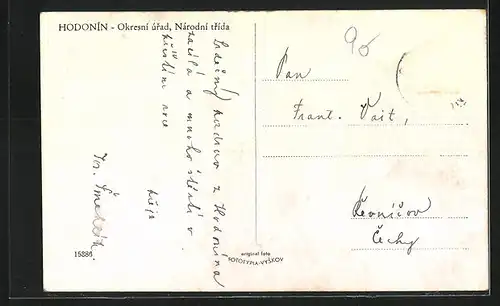 HODONÍN - Okresní úřad, Národní třída
Srdečný pozdrav z Hodonína
zasílá a mnoho štěstí v
příštím roce
přeje
Jos.
96
Pan
Frant. Vait,
Řevničov
Čechy
15386
original foto
FOTOTYPIA-VYŠKOV